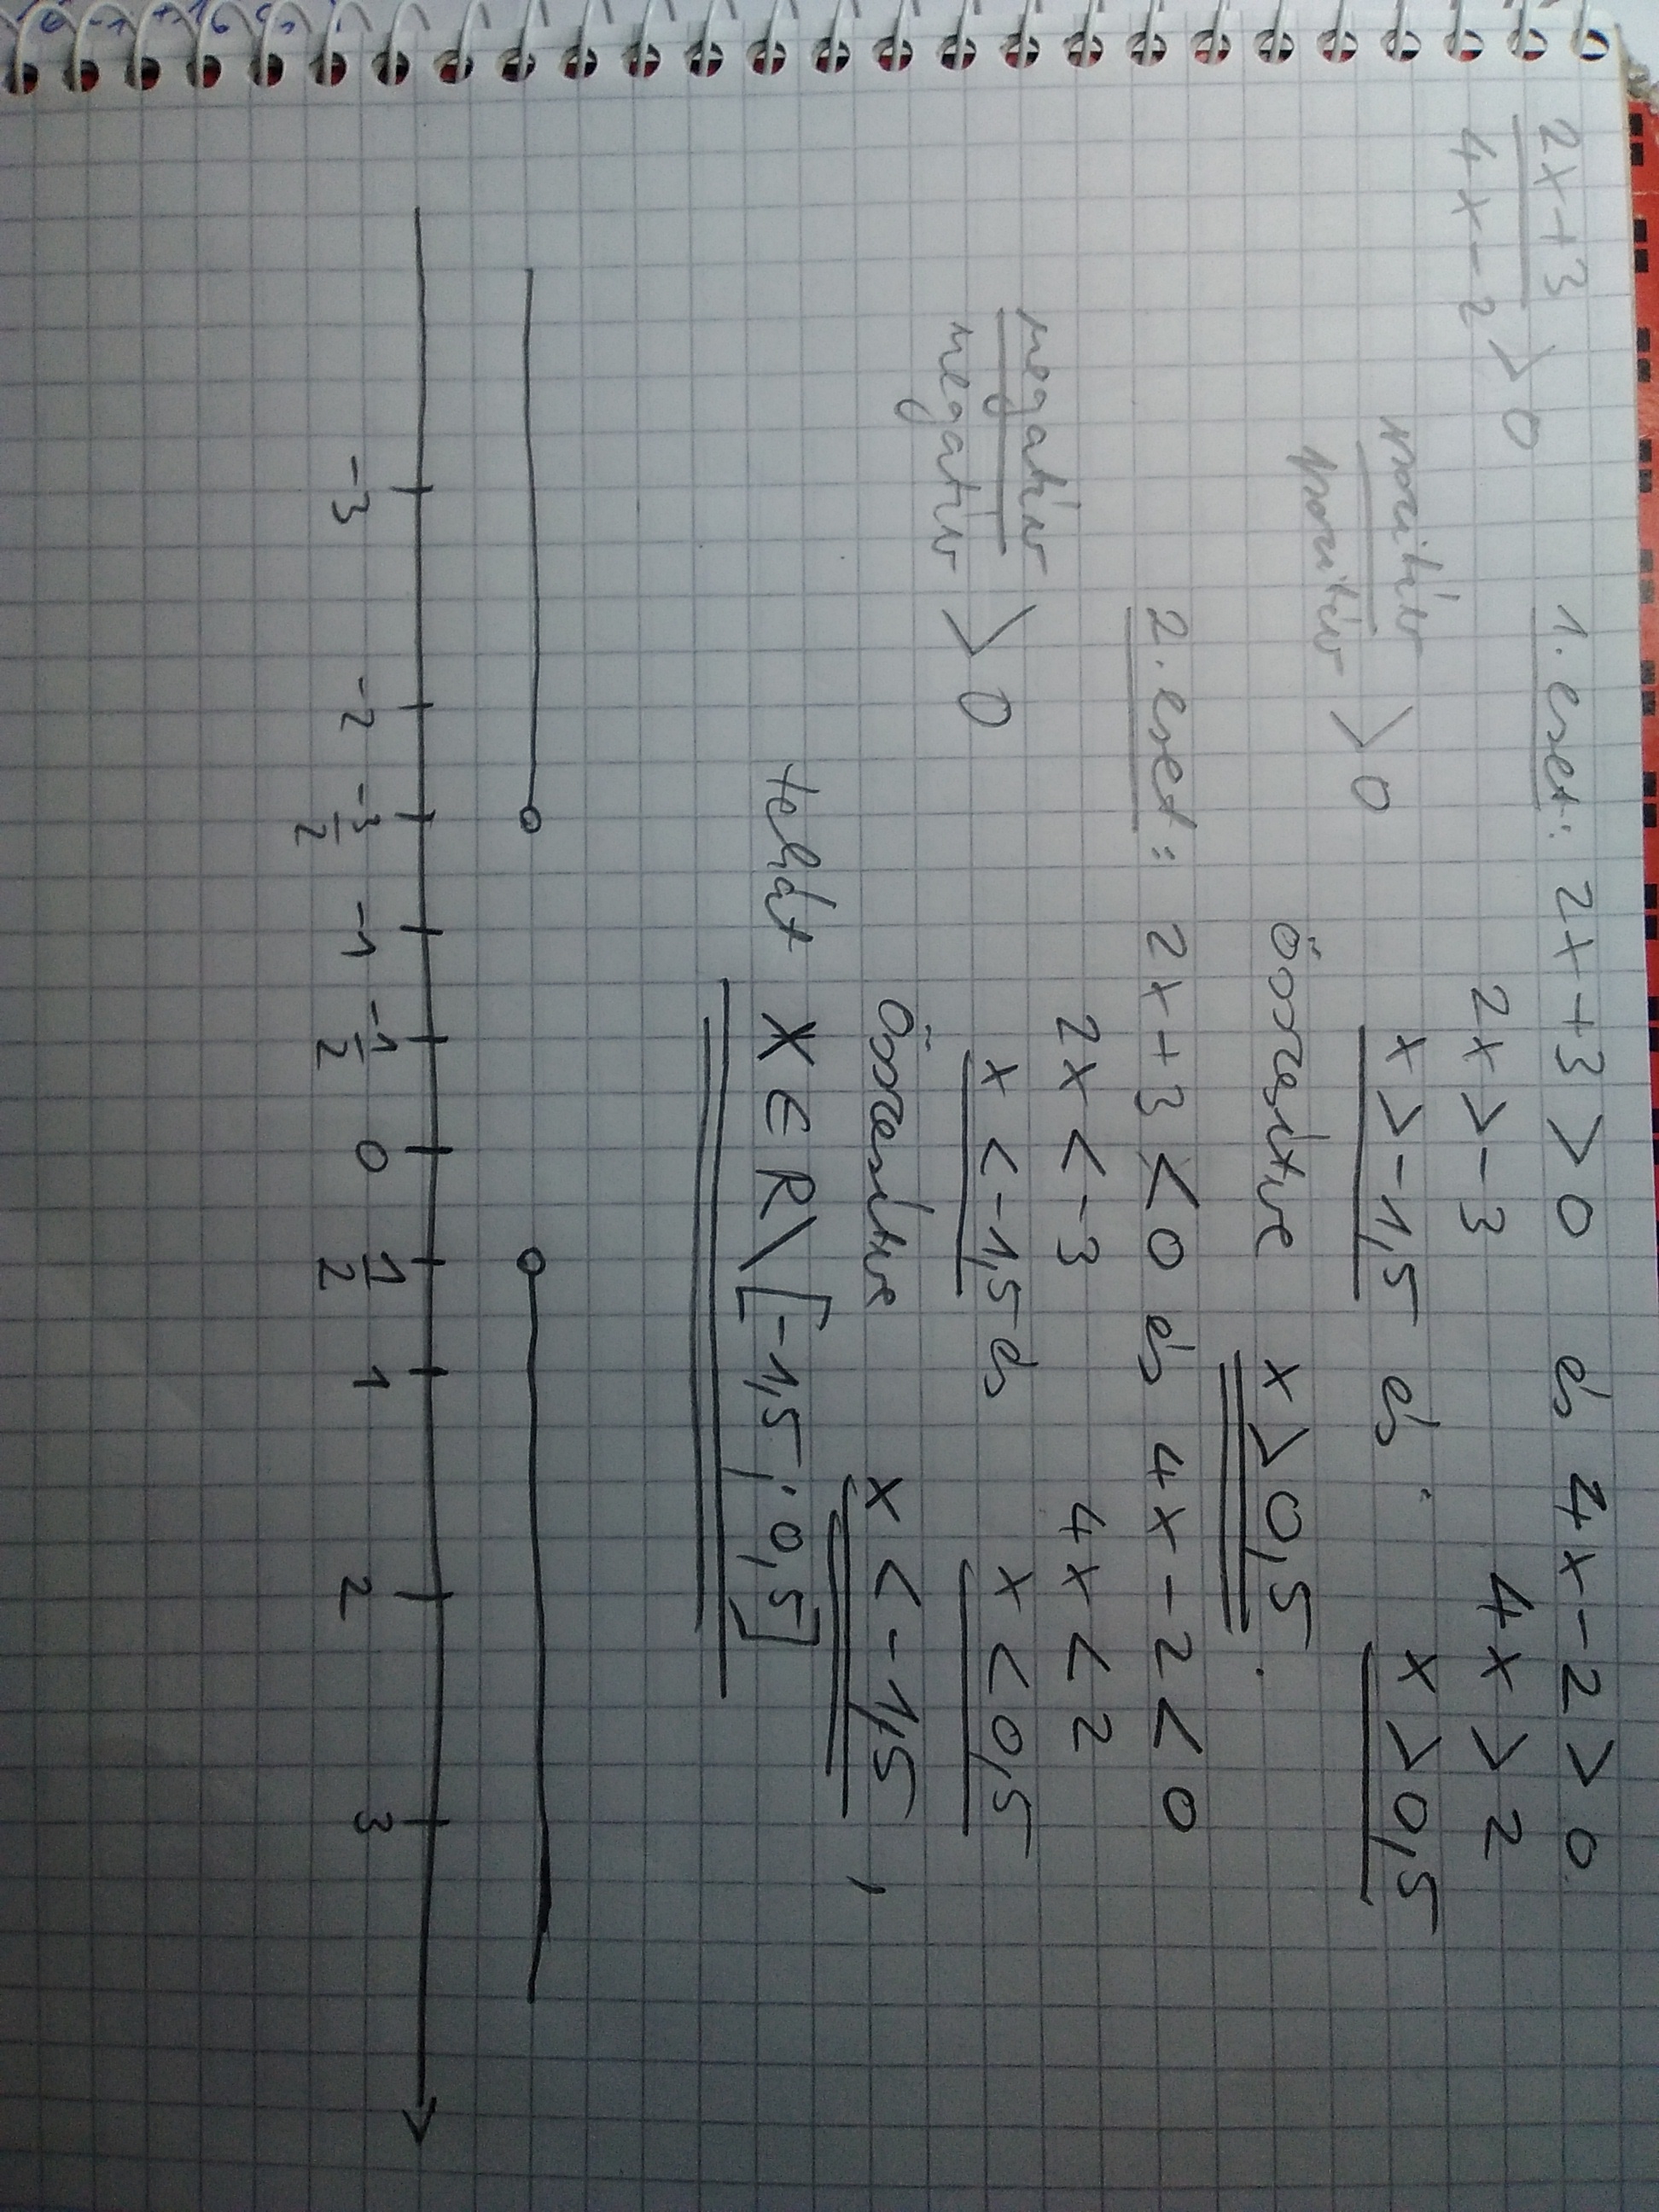 2x+3 / 4x-2 > 0
1. eset: 2x+3>0 és 4x-2>0
2x>-3 4x>2
pozitív / pozitív > 0
x>-1,5 és x>0,5
összesítve x>0,5
2. eset: 2x+3<0 és 4x-2<0
2x<-3 4x<2
negatív / negatív > 0
x<-1,5 és x<0,5
összesítve x<-1,5
tehát x∈R\[-1,5;0,5]
-3 -2 -3/2 -1 -1/2 0 1/2 1 2 3